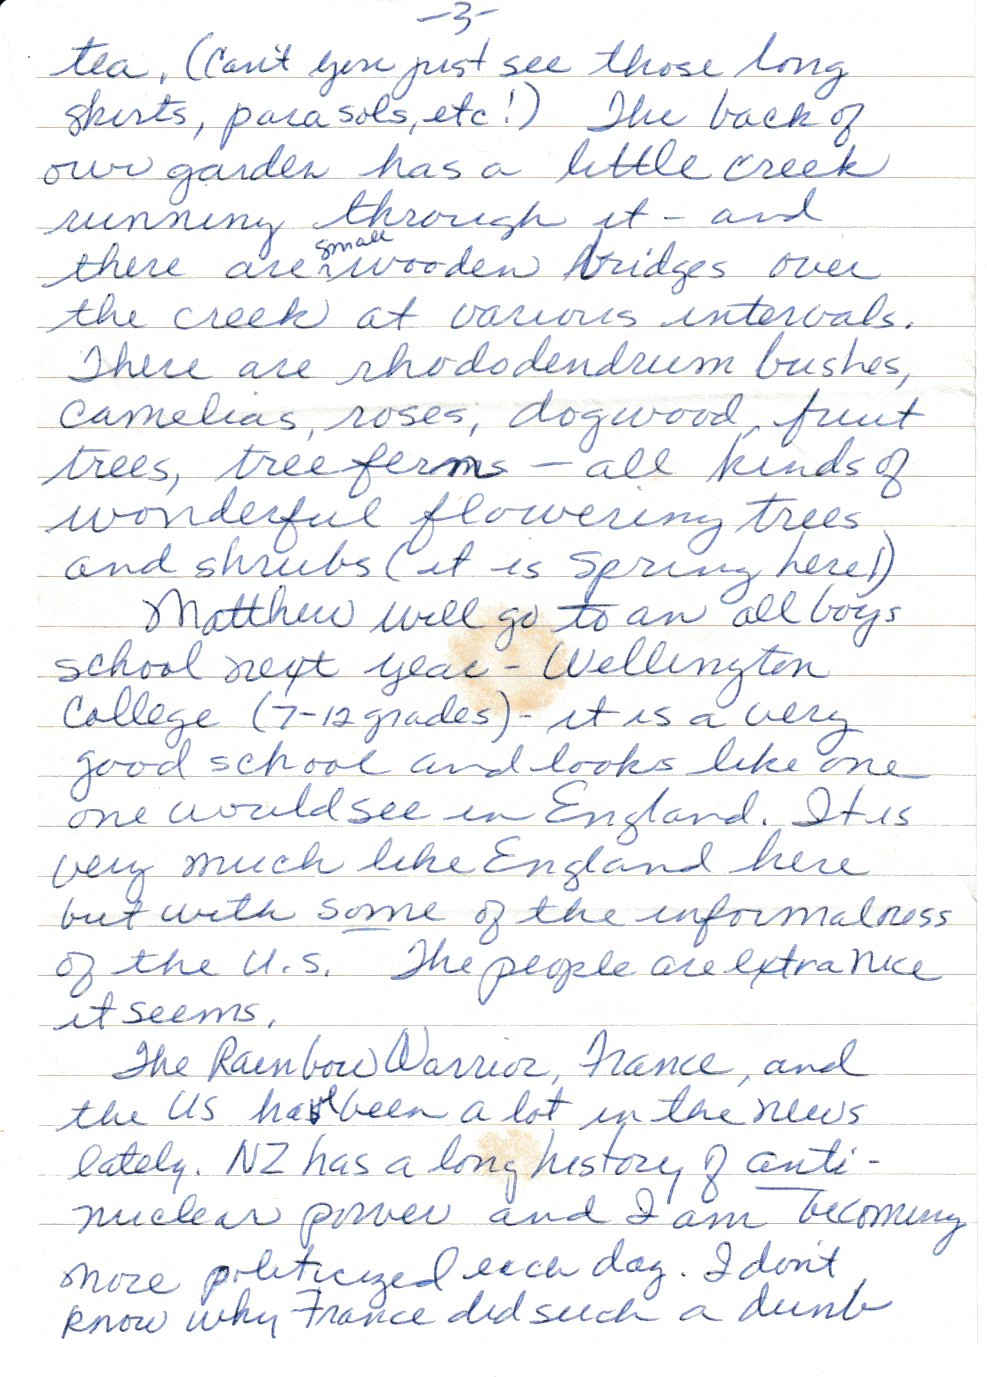 -3-
tea. (Can't you just see those long
skirts, parasols, etc!) The back of
our garden has a little creek
running through it - and
there are small wooden bridges over
the creek at various intervals.
There are rhododendrum bushes,
camelias, roses, dogwood, fruit
trees, tree ferns - all kinds of
wonderful flowering trees
and shrubs (it is Spring here!)
Matthew will go to an all boys
school next year - Wellington
College (7-12 grades) - it is a very
good school and looks like one
one would see in England. It is
very much like England here
but with some of the informalness
of the U.S. The people are extra nice
it seems.
The Rainbow Warrior, France, and
the US have been a lot in the news
lately. NZ has a long history of anti-
nuclear power and I am becoming
more politicized each day. I don't
know why France did such a dumb